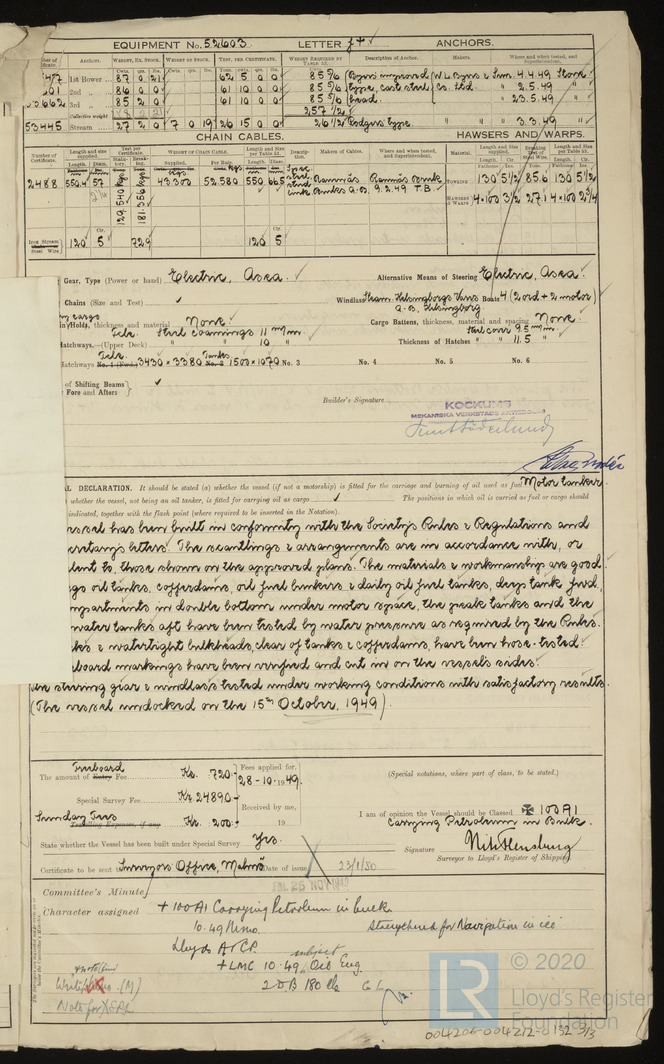 EQUIPMENT No. 52603. LETTER f+ ANCHORS.
ANCHORS. WEIGHT, EX. STOCK. WEIGHT OF STOCK. TEST, PER CERTIFICATE. WEIGHT REQUIRED BY TABLE 53. Description of Anchor. Makers. Where and when tested, and Superintendent.
1st Bower 87 0 21 62 5 0 0 85 5/6 Byers improved W.L. Byers & Sons 4.4.49
2nd 86 0 0 61 10 0 0 85 5/6 type, cast steel Co. Ltd. 2.5.49
53662 3rd 85 2 0 61 10 0 0 85 5/6 head. 23.5.49
Collective weight 257 1/2
53445 Stream 27 2 0 7 0 19 26 15 0 0 26 1/2 Rodgers type 3.3.49
CHAIN CABLES. HAWSERS AND WARPS.
Number of Certificate. Length and size supplied. Test per Certificate. WEIGHT OF CHAIN CABLE. Length and size per Table 53. Description. Makers of Cables. Where and when tested, and Superintendent. Material. Length and Size supplied. Breaking Test of Steel Wire. Length and Size per Table 53.
2488 550.4 57 129.540 kgs 181.356 kgs 43300 52.580 550 66.5 link Ramnäs Bruks A.B. Ramnäs Bruk 9.2.49 T.B. TOWLINE 130 5 1/2 85.6 130 5 1/2
HAWSERS & WARPS 4×100 2 3/4 27.1 4×100 2 3/4
Iron Stream Steel Wire 120 5 72.9 120 5
Gear, Type (Power or hand) Electric, Asea. Alternative Means of Steering Electric, Asea.
Chains (Size and Test) Windlass Steam. Helsingborgs Varvs A.B., Helsingborg Boats 4 (2 ord + 2 motor)
Holds, thickness and material None. Cargo Battens, thickness, material and spacing None.
Hatchways.—(Upper Deck) Steel coamings 11 m/m. " 10 " Thickness of Hatches Steel cover 9.5 m/m. " " 11.5 "
Hatchways No. 1 (Fwd.) 3430 × 3380 Tanks No. 2 1500 × 1070 No. 3 No. 4 No. 5 No. 6
of Shifting Beams
Fore and Afters
Builder's Signature
KOCKUMS
MEKANISKA VERKSTADS AKTIEBOLAG
AL DECLARATION. It should be stated (a) whether the vessel (if not a motorship) is fitted for the carriage and burning of oil used as fuel Motor tanker.
whether the vessel, not being an oil tanker, is fitted for carrying oil as cargo The positions in which oil is carried as fuel or cargo should
indicated, together with the flash point (where required to be inserted in the Notation).
essel has been built in conformity with the Society's Rules & Regulations and
cretary's letters. The scantlings & arrangements are in accordance with, or
lent to, those shown on the approved plans. The materials & workmanship are good.
go oil tanks, cofferdams, oil fuel bunkers & daily oil fuel tanks, deep tank fwd.,
mpartments in double bottom under motor space, the peak tanks and the
water tanks aft have been tested by water pressure as required by the Rules.
ks & watertight bulkheads, clear of tanks & cofferdams, have been hose-tested.
board markings have been verified and cut in on the vessel's sides.
The steering gear & windlass tested under working conditions with satisfactory results.
(The vessel undocked on the 15th October, 1949).
The amount of Freeboard Entry Fee Kr. 720:- Fees applied for, 28-10-1949.
Special Survey Fee Kr. 24890:- Received by me,
Sunday Fees Travelling Expenses, if any Kr. 200:- 19
(Special notations, where part of class, to be stated.)
I am of opinion the Vessel should be Classed ✠ 100A1
Carrying Petroleum in Bulk.
State whether the Vessel has been built under Special Survey Yes.
Signature
Surveyor to Lloyd's Register of Shipping.
Certificate to be sent to Surveyors Office, Malmö Date of issue 23/1/50
FRI. 25 NOV 1949
Committee's Minute
Character assigned + 100A1 Carrying Petroleum in bulk
10.49 Strengthened for Navigation in ice
Lloyds A & CP.
subject
+ LMC 10.49 Oil Eng.
2 DB 180 lb CL
© 2020
LR
Lloyd's Register
Foundation
004206-004212-0132 3/3